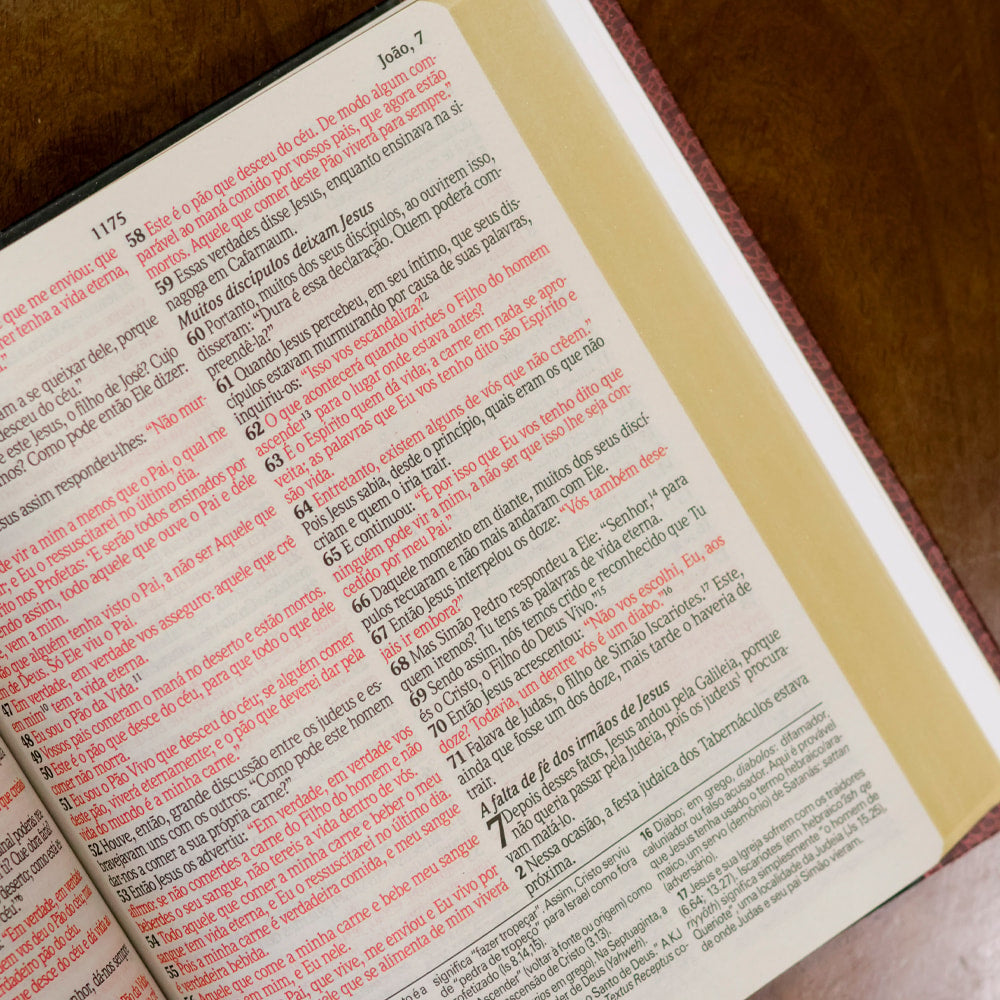 1175
João, 7
que me enviou: que
tenha a vida eterna,
a se queixar dele, porque
desceu do céu.”
este Jesus, o filho de José? Cujo
Como pode então Ele dizer:
assim respondeu-lhes: “Não mur-
vir a mim a menos que o Pai, o qual me
e Eu o ressuscitarei no último dia.
nos Profetas: “E serão todos ensinados por
assim, todo aquele que ouve o Pai e dele
vem a mim.
que alguém tenha visto o Pai, a não ser Aquele que
de Deus. Só Ele viu o Pai.
47 Em verdade, em verdade vos asseguro: aquele que crê
em mim¹⁰ tem a vida eterna.
48 Eu sou o Pão da Vida.¹¹
49 Vossos pais comeram o maná no deserto e estão mortos.
50 Este é o pão que desce do céu, para que todo o que dele
comer não morra.
51 Eu sou o Pão Vivo que desceu do céu; se alguém comer
deste pão viverá eternamente; e o pão que deverei dar pela
vida do mundo é a minha carne.”
52 Houve, então, grande discussão entre os judeus e es-
bravejavam uns com os outros: “Como pode este homem
dar-nos a comer a sua própria carne?”
53 Então Jesus os advertiu: “Em verdade, em verdade vos
afirmo: se não comerdes a carne do Filho do homem e não
beberdes o seu sangue, não tereis a vida dentro de vós.
54 Todo aquele que comer a minha carne e beber o meu
sangue tem vida eterna, e Eu o ressuscitarei no último dia.
55 Pois a minha carne é verdadeira comida, e meu sangue
é verdadeira bebida.
56 que come a minha carne e bebe meu sangue
em mim, e Eu nele.
Pai, que vive, me enviou e Eu vivo por
que se alimenta de mim viverá
58 Este é o pão que desceu do céu. De modo algum com-
parável ao maná comido por vossos pais, que agora estão
mortos. Aquele que comer deste Pão viverá para sempre.”
59 Essas verdades disse Jesus, enquanto ensinava na si-
nagoga em Cafarnaum.
Muitos discípulos deixam Jesus
60 Portanto, muitos dos seus discípulos, ao ouvirem isso,
disseram: “Dura é essa declaração. Quem poderá com-
preendê-la?”
61 Quando Jesus percebeu, em seu íntimo, que seus dis-
cípulos estavam murmurando por causa de suas palavras,
inquiriu-os: “Isso vos escandaliza?¹²
62 O que acontecerá quando virdes o Filho do homem
ascender¹³ para o lugar onde estava antes?
63 É o Espírito quem dá vida; a carne em nada se apro-
veita; as palavras que Eu vos tenho dito são Espírito e
são vida.
64 Entretanto, existem alguns de vós que não crêem.”
Pois Jesus sabia, desde o princípio, quais eram os que não
criam e quem o iria trair.
65 E continuou: “É por isso que Eu vos tenho dito que
ninguém pode vir a mim, a não ser que isso lhe seja con-
cedido por meu Pai.”
66 Daquele momento em diante, muitos dos seus discí-
pulos recuaram e não mais andaram com Ele.
67 Então Jesus interpelou os doze: “Vós também dese-
jais ir embora?”
68 Mas Simão Pedro respondeu a Ele: “Senhor,¹⁴ para
quem iremos? Tu tens as palavras de vida eterna.
69 Sendo assim, nós temos crido e reconhecido que Tu
és o Cristo, o Filho do Deus Vivo.”¹⁵
70 Então Jesus acrescentou: “Não vos escolhi, Eu, aos
doze? Todavia, um dentre vós é um diabo.”¹⁶
71 Falava de Judas, o filho de Simão Iscariotes,¹⁷ Este,
ainda que fosse um dos doze, mais tarde o haveria de
trair.
A falta de fé dos irmãos de Jesus
7 Depois desses fatos, Jesus andou pela Galileia, porque
não queria passar pela Judeia, pois os judeus procura-
vam matá-lo.
2 Nessa ocasião, a festa judaica dos Tabernáculos estava
próxima.
significa “fazer tropeçar”. Assim, Cristo serviu
de “pedra de tropeço” para Israel como fora
profetizado (Is 8.14,15).
(voltar à fonte ou origem) como
(3.13).
em grego). Na Septuaginta, a
de Deus (Yahweh).
o Santo de Deus”. A KJ
Textus Receptus co-
16 Diabo, em grego, diabolos: difamador,
caluniador ou falso acusador. Aqui é provável
que Jesus tenha usado o termo hebraico/ara-
maico, um servo (demônio) de Satanás: satan
(adversário).
17 Jesus e sua Igreja sofrem com os traidores
(6.64; 13.27). Iscariotes (em hebraico
significa simplesmente “o homem de
Queriote”, uma localidade da Judeia (Js 15.25),
de onde Judas e seu pai Simão vieram.